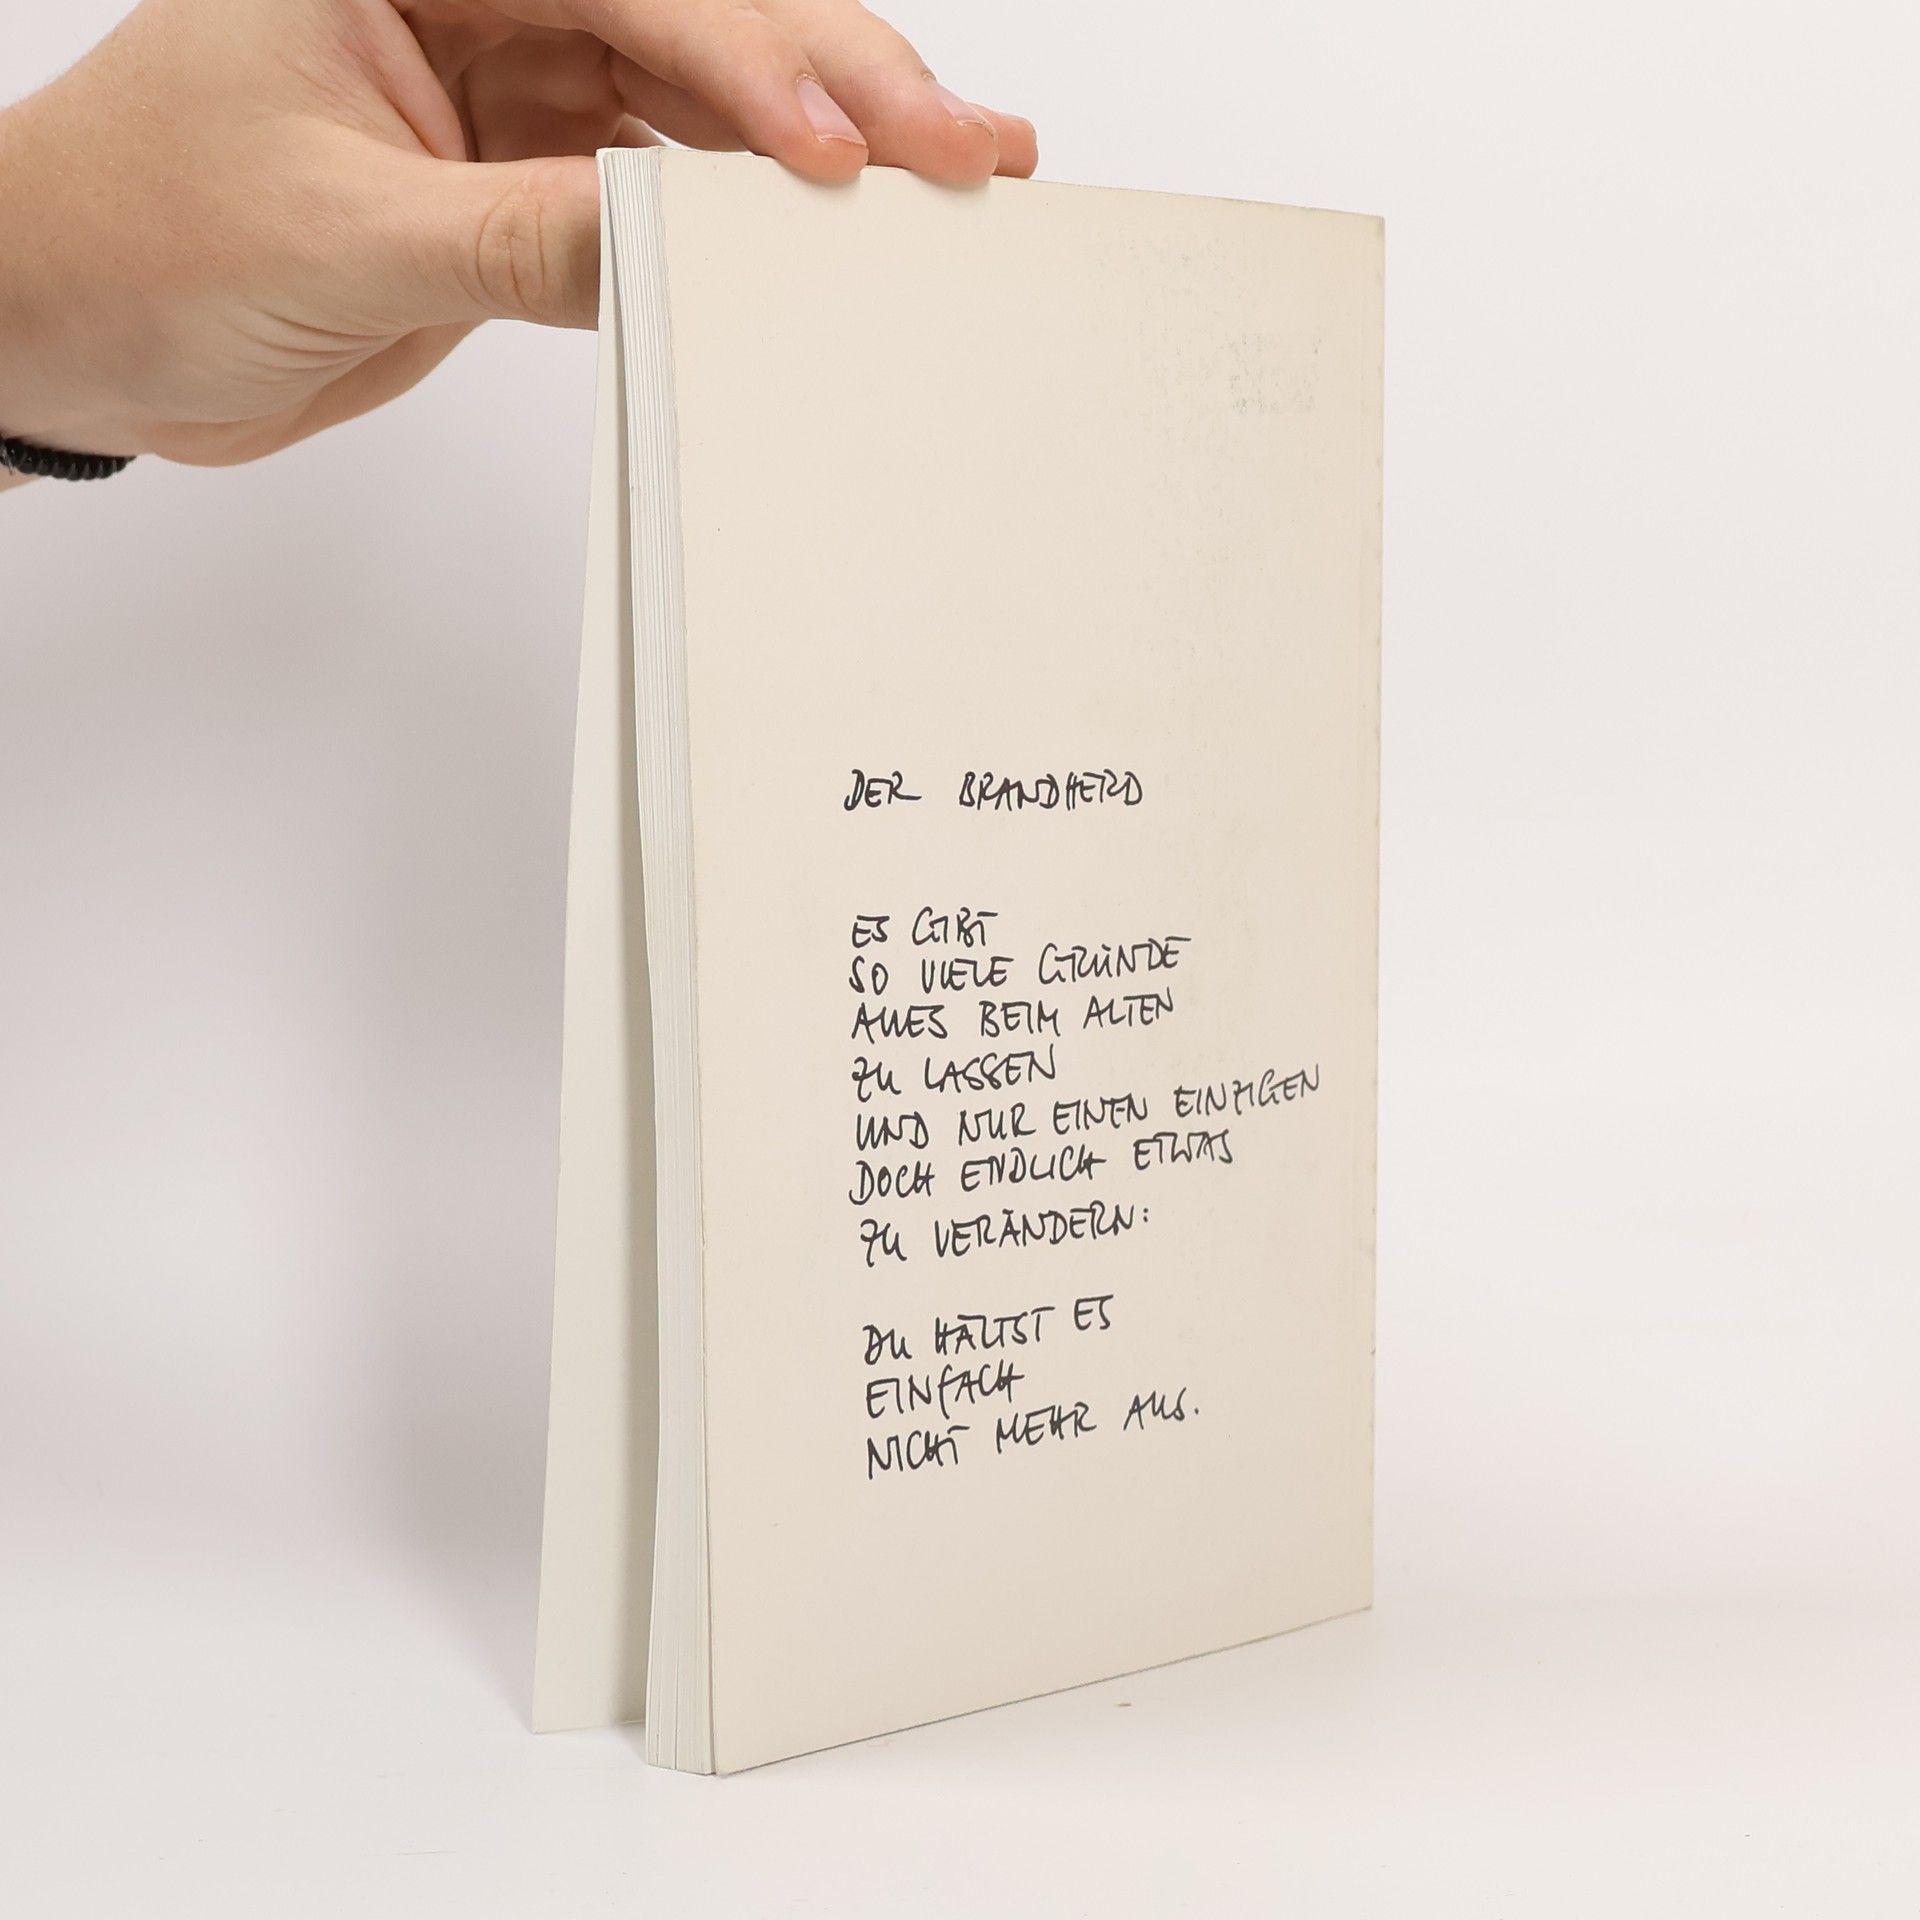 DER BRANDHERD
ES GIBT
SO VIELE GRÜNDE
ALLES BEIM ALTEN
ZU LASSEN
UND NUR EINEN EINZIGEN
DOCH ENDLICH ETWAS
ZU VERÄNDERN:
DU HÄLTST ES
EINFACH
NICHT MEHR AUS.